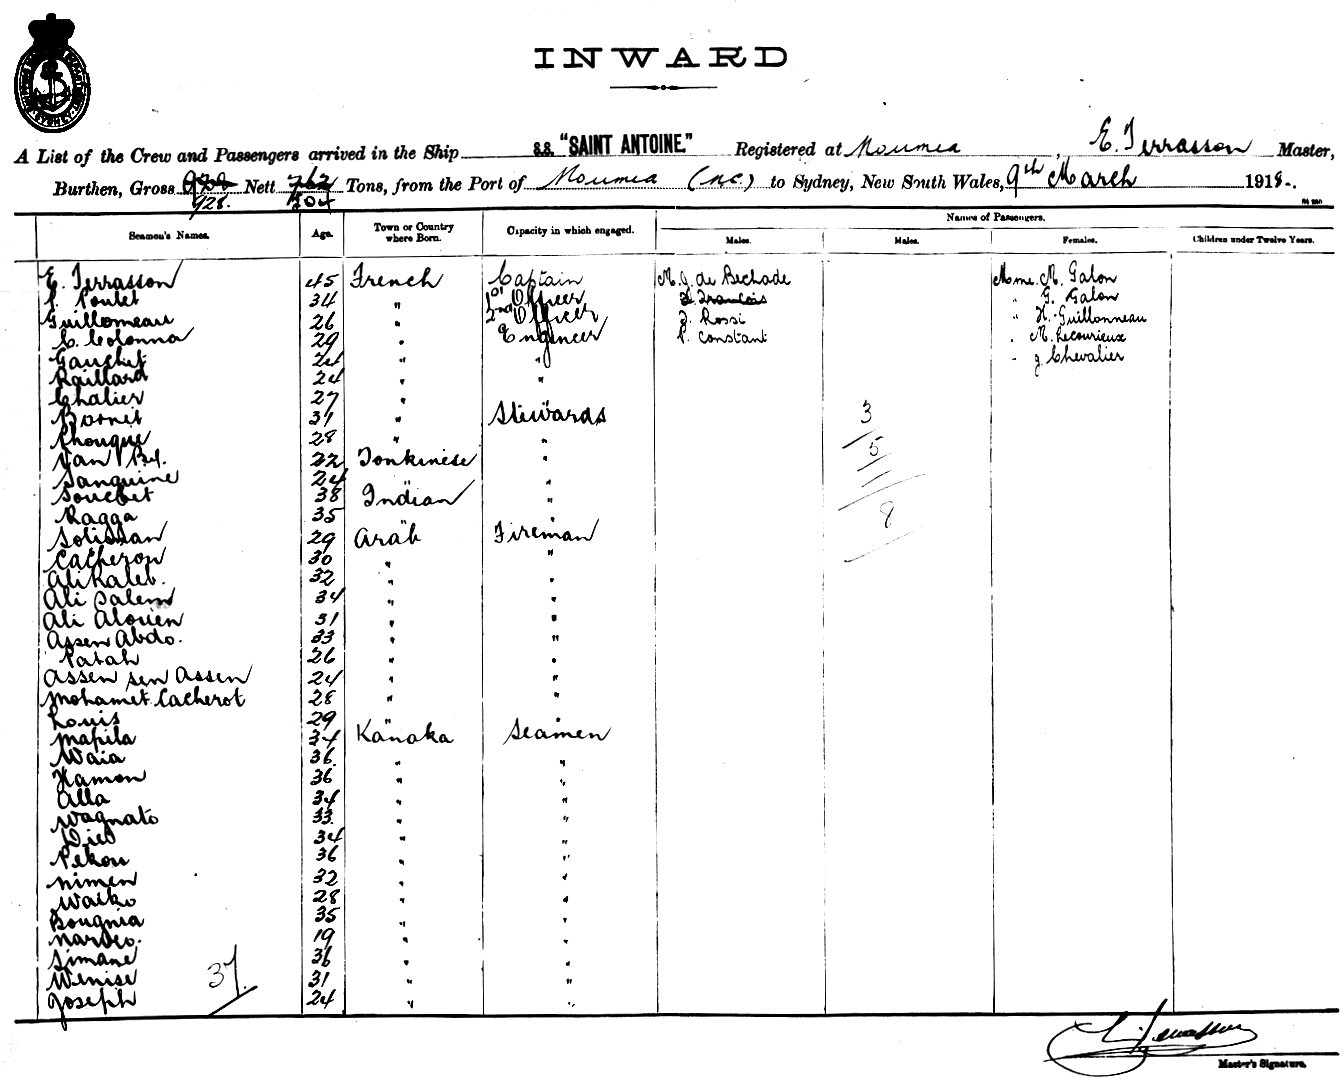 INWARD
A List of the Crew and Passengers arrived in the Ship S.S. "SAINT ANTOINE." Registered at Noumea, E. Terrasson Master,
Burthen, Gross 928. Nett 504 Tons, from the Port of Noumea (N.C.) to Sydney, New South Wales, 9th March 1918.
Names of Passengers.
Seamen's Names. Age. Town or Country where Born. Capacity in which engaged. Males. Males. Females. Children under Twelve Years.
E. Terrasson 45 French Captain M. J. de Bechade Mme. M. Galon
P. Poulet 34 " 1st Officer François " G. Galon
Guillomeau 26 " 2nd Officer J. Rossi " H. Guillonneau
C. Colonna 29 " Engineer P. Constant " M. Lecourieux
Gauchet " " " J. Chevalier
Raillard 24 " "
Chalier 27 " "
Bornet 31 " Stewards 3
Chouque 28 " "
Van 22 Tonkinese " 5
Sanguine 24 " " 1
Souchet 38 Indian "
Ragga 35 " " 8
29 Arab Fireman
Cacheron 30 " "
Ali Kaleb. 32 " "
Ali Salem 34 " "
Ali 31 " "
Assen Abdo. 33 " "
Patah 26 " "
Assen sen Assen 24 " "
Mohamet Cacherot 28 " "
Louis 29 " "
Mapila 34 Kanaka Seamen
Waia 36. " "
Hamon 36 " "
Alla 34 " "
Wagnato 33. " "
34 " "
Pekou 36 " "
Nimen 32 " "
Waiko 28 " "
Bougnia 35 " "
Nardeo. 19 " "
Simane 36 " "
Wenise 31 " "
Joseph 24 " "
37.
E. Terrasson
Master's Signature.